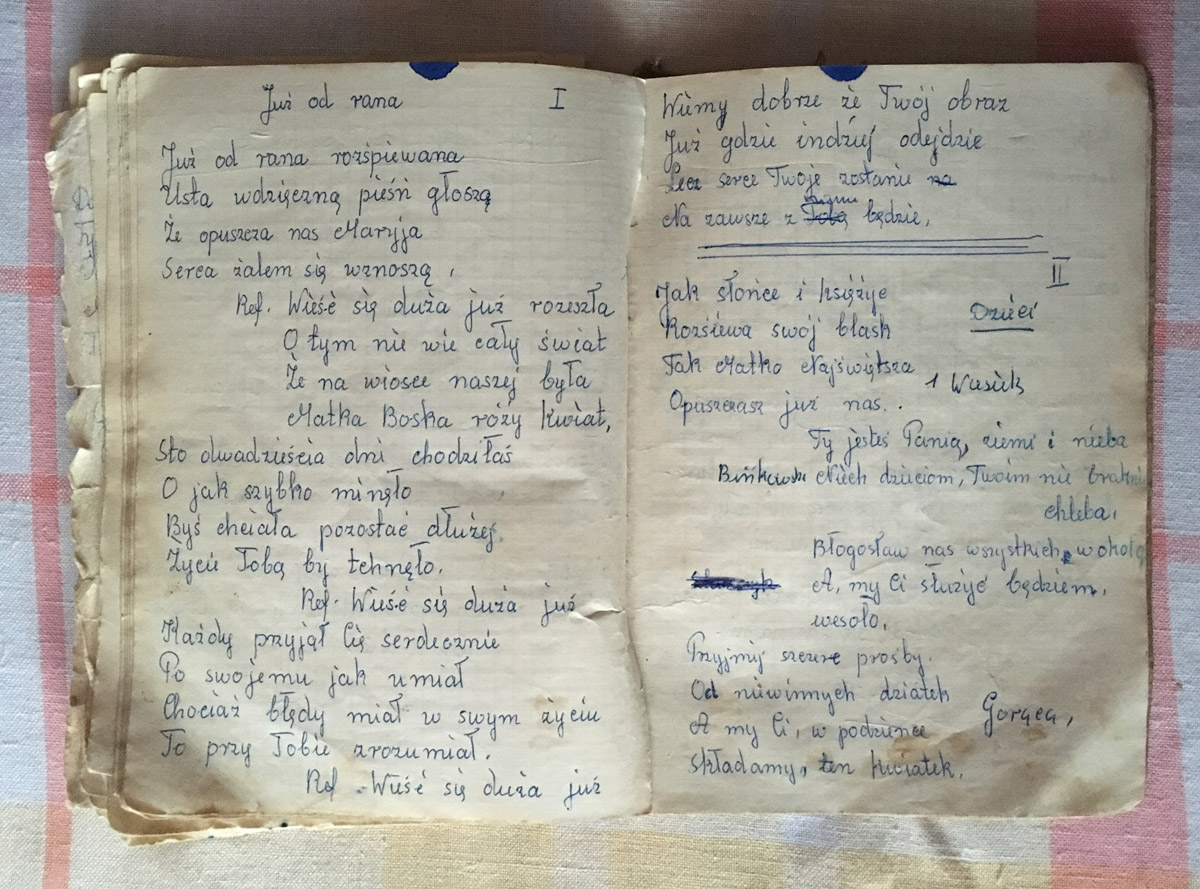 Już od rana I
Już od rana rozśpiewana
Usta wdzięczną pieśń głoszą
Że opuszcza nas Maryja
Serca żalem się wznoszą,
Ref. Wieść się duża już rozeszła
O tym nie wie cały świat
Że na wiosce naszej była
Matka Boska róży kwiat,
Sto dwadzieścia dni chodziłaś
O jak szybko minęło
Byś chciała pozostać dłużej,
Życie Tobą by tchnęło.
Ref. Wieść się duża już
Każdy przyjął Cię serdecznie
Po swojemu jak umiał
Chociaż błędy miał w swym życiu
To przy Tobie zrozumiał.
Ref. Wieść się duża już
Wiemy dobrze że Twój obraz
Już gdzie indziej odejdzie
Lecz serce Twoje zostanie na
Na zawsze z Tobą będzie,
II
Jak słońce i księżyc
Dzieci
Rozsiewa swój blask
Tak Matko Najświętsza
1 Wasiek
Opuszczasz już nas.
Ty jesteś Panią, ziemi i nieba
Niech dzieciom, Twoim nie braknie
chleba,
Błogosław nas wszystkich, wokoło
A, my Ci służyć będziem,
wesoło,
Przyjmij szczere prośby.
Od niewinnych dziatek
Gorąca,
A my Ci, w podzience
składamy, ten kwiatek.